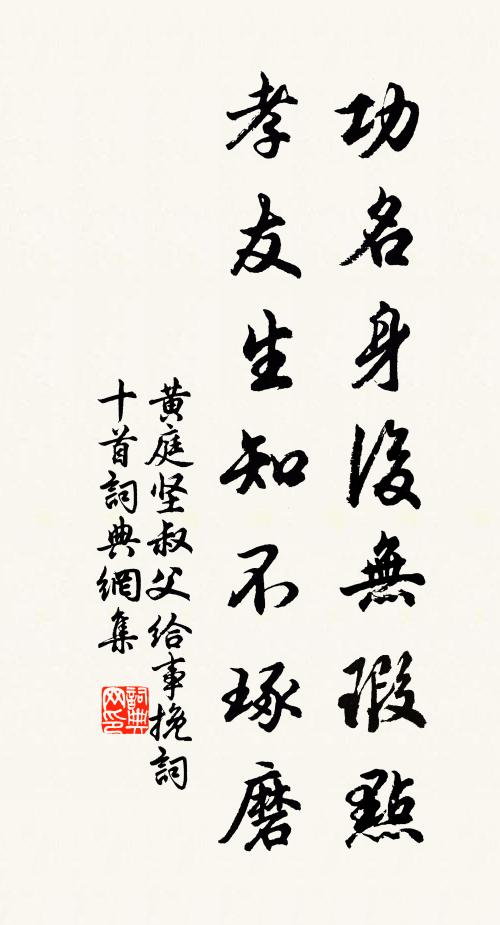 功名身後無瑕點
孝友生知不琢磨
黄庭坚叔父给事挽詞
十首詞典網集
詞典
网印